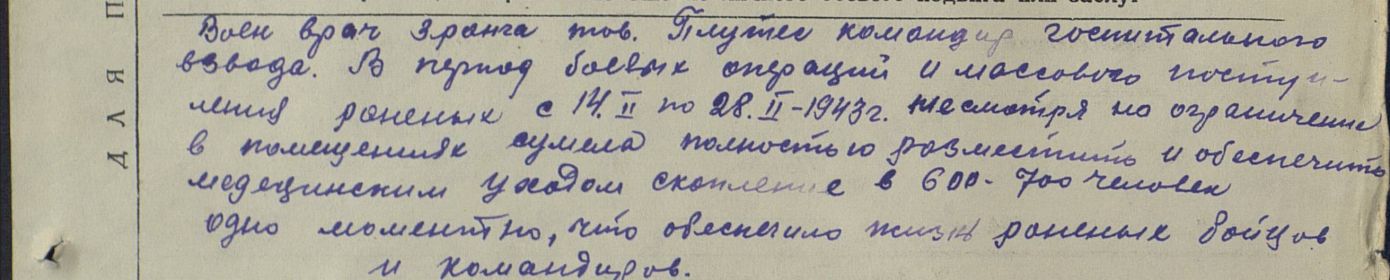 Д Л Я П
Воен врач 3 ранга тов. Плутес командир госпитального
взвода. В период боевых операций и массового поступ-
ления раненых с 14.II по 28.II-1943г. несмотря на ограничение
в помещениях сумела полностью разместить и обеспечить
медецинским уходом скопление в 600-700 человек
одно моментно, что обеспечило жизнь раненых бойцов
и командиров.